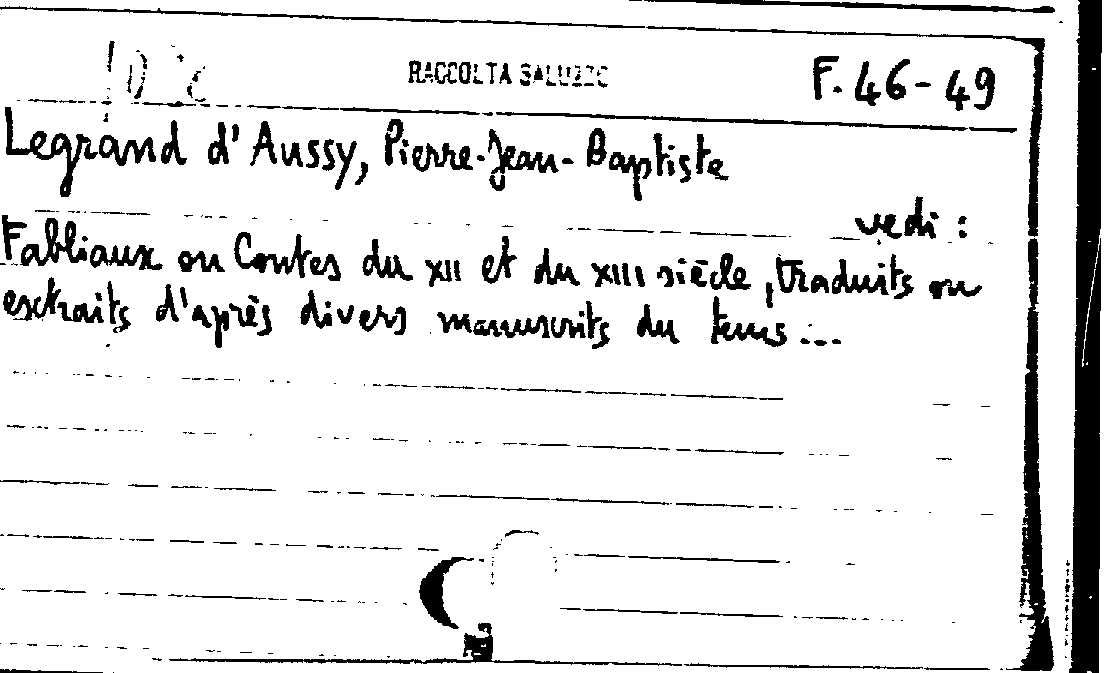 RACCOLTA SALUZZO F. 46-49
Legrand d'Aussy, Pierre-Jean-Baptiste
vedi :
Fabliaux ou Contes du XII et du XIII siècle, traduits ou
extraits d'après divers manuscrits du tems...